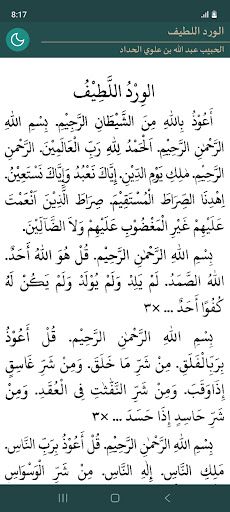 8:17
الورد اللطيف
الحبيب عبد الله بن علوي الحداد
الوِرْدُ اللَّطِيْفُ
أَعُوْذُ بِاللهِ مِنَ الشَّيْطَانِ الرَّجِيْمِ. بِسْمِ اللهِ
الرَّحْمٰنِ الرَّحِيْمِ. اَلْحَمْدُ لِلّٰهِ رَبِّ الْعَالَمِيْنَ. الرَّحْمٰنِ
الرَّحِيْمِ. مَلِكِ يَوْمِ الدِّيْنِ. إِيَّاكَ نَعْبُدُ وَإِيَّاكَ نَسْتَعِيْنُ.
اِهْدِنَا الصِّرَاطَ الْمُسْتَقِيْمَ. صِرَاطَ الَّذِيْنَ اَنْعَمْتَ
عَلَيْهِمْ غَيْرِ الْمَغْضُوْبِ عَلَيْهِمْ وَلَا الضَّالِّيْنَ.
بِسْمِ اللهِ الرَّحْمٰنِ الرَّحِيْمِ. قُلْ هُوَ اللهُ اَحَدٌ.
اَللهُ الصَّمَدُ. لَمْ يَلِدْ وَلَمْ يُوْلَدْ وَلَمْ يَكُنْ لَهُ
كُفُوًا أَحَدٌ ... ×٣
بِسْمِ اللهِ الرَّحْمٰنِ الرَّحِيْمِ. قُلْ أَعُوْذُ
بِرَبِّالْفَلَقِ. مِنْ شَرِّ مَا خَلَقَ. وَمِنْ شَرِّ غَاسِقٍ
إِذَاوَقَبَ. وَمِنْ شَرِّ النَّفّٰثٰتِ فِي الْعُقَدِ. وَمِنْ
شَرِّ حَاسِدٍ إِذَا حَسَدَ ... ×٣
بِسْمِ اللهِ الرَّحْمٰنِ الرَّحِيْمِ. قُلْ أَعُوْذُ بِرَبِّ النَّاسِ.
مَلِكِ النَّاسِ. إِلٰهِ النَّاسِ. مِنْ شَرِّ الْوَسْوَاسِ